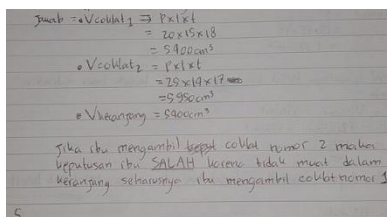 Jawab = • Vcoklat₁ ⇒ p×l×t
= 20×15×18
= 5400cm³
• Vcoklat₂ = p×l×t
= 25×14×17
= 5950cm³
• Vkeranjang = 5400cm³
Jika ibu mengambil coklat nomor 2 maka
keputusan ibu SALAH karena tidak muat dalam
keranjang seharusnya ibu mengambil coklat nomor 1